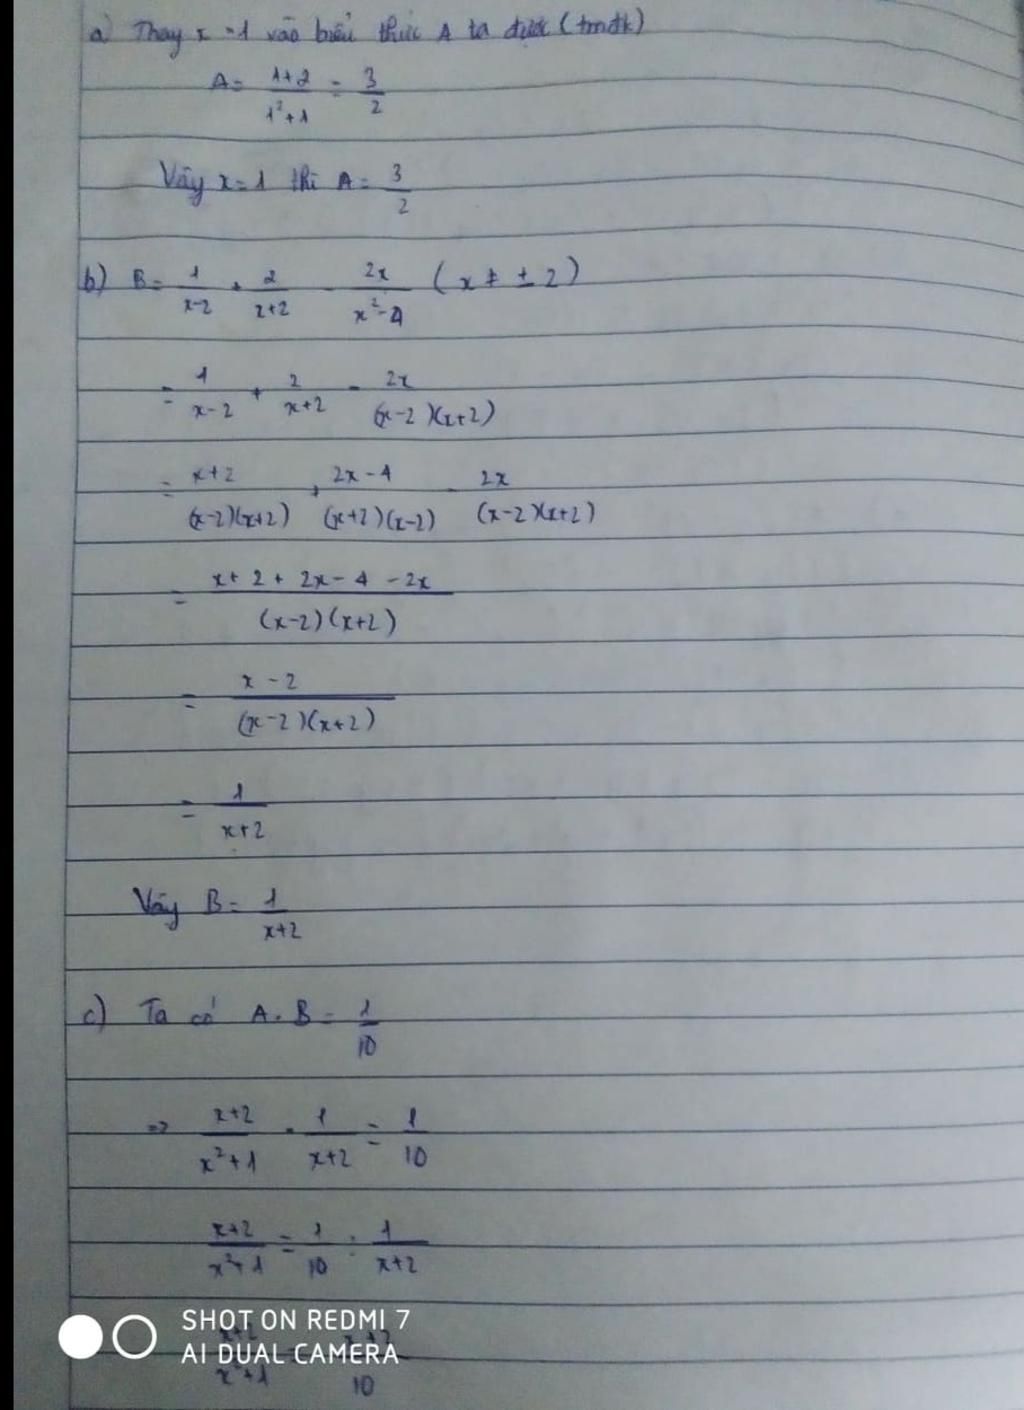 a) Thay x = 1 vào biểu thức A ta được (tmđk)
A = (1+2)/(1²+1) = 3/2
Vây x = 1 thì A = 3/2
b) B = 1/(x-2) + 2/(x+2) - 2x/(x²-4) (x ≠ ± 2)
= 1/(x-2) + 2/(x+2) - 2x/((x-2)(x+2))
= (x+2)/((x-2)(x+2)) + (2x-4)/((x+2)(x-2)) - 2x/((x-2)(x+2))
= (x+2+2x-4-2x)/((x-2)(x+2))
= (x-2)/((x-2)(x+2))
= 1/(x+2)
Vây B = 1/(x+2)
c) Ta có A . B = 1/10
=> (x+2)/(x²+1) . 1/(x+2) = 1/10
(x+2)/(x²+1) = 1/10 : 1/(x+2)
(x+2)/(x²+1) = (x+2)/10
SHOT ON REDMI 7
AI DUAL CAMERA